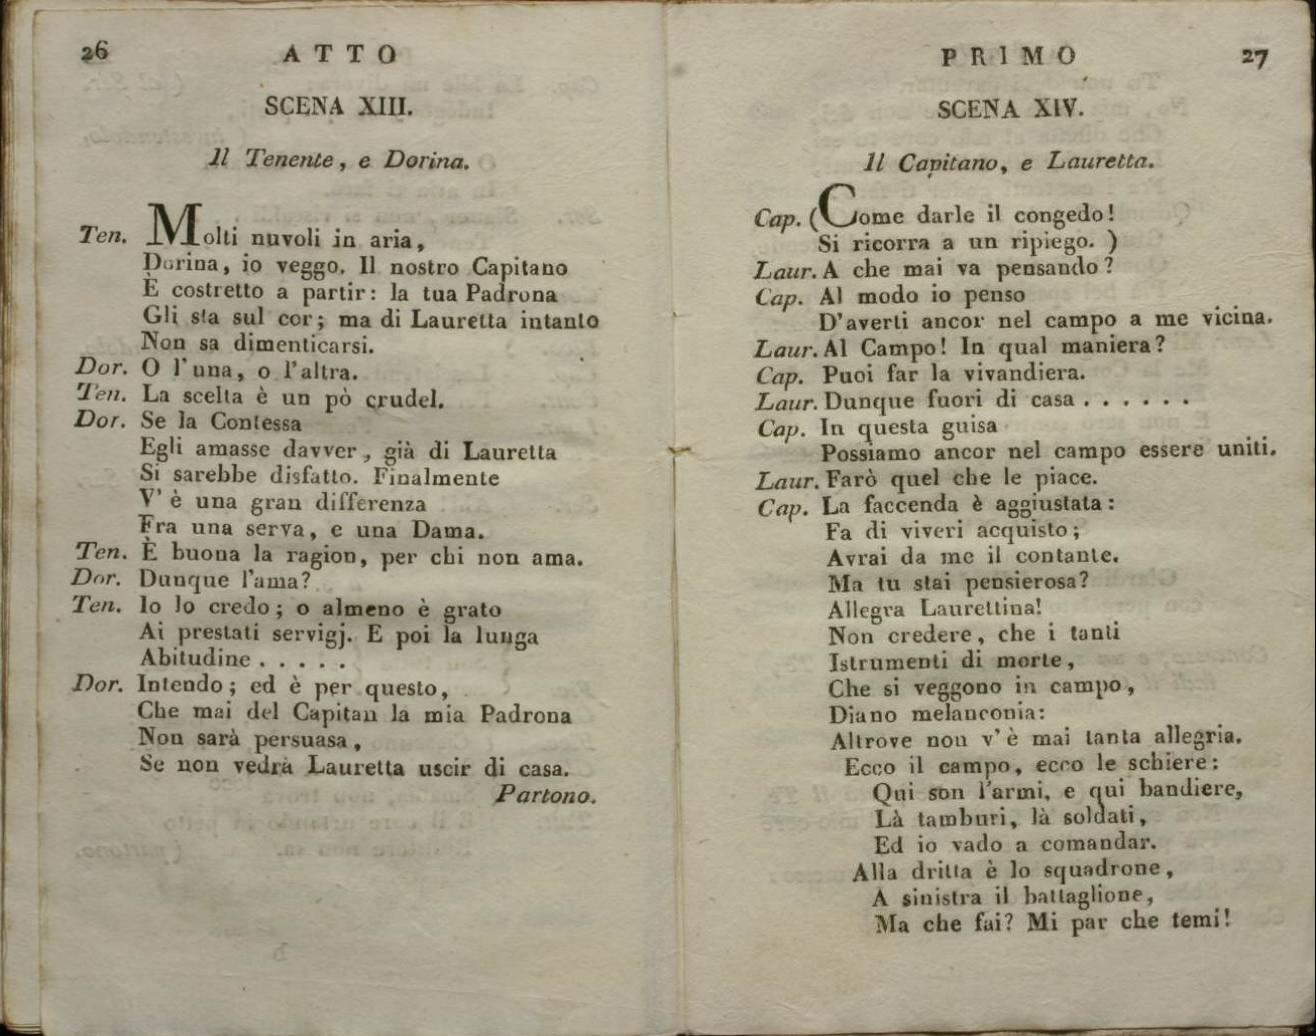 26
ATTO
SCENA XIII.
Il Tenente, e Dorina.
Ten. Molti nuvoli in aria,
Dorina, io veggo. Il nostro Capitano
È costretto a partir: la tua Padrona
Gli sta sul cor; ma di Lauretta intanto
Non sa dimenticarsi.
Dor. O l'una, o l'altra.
Ten. La scelta è un pò crudel.
Dor. Se la Contessa
Egli amasse davver, già di Lauretta
Si sarebbe disfatto. Finalmente
V' è una gran differenza
Fra una serva, e una Dama.
Ten. È buona la ragion, per chi non ama.
Dor. Dunque l'ama?
Ten. Io lo credo; o almeno è grato
Ai prestati servigj. E poi la lunga
Abitudine . . . . .
Dor. Intendo; ed è per questo,
Che mai del Capitan la mia Padrona
Non sarà persuasa,
Se non vedrà Lauretta uscir di casa.
Partono.
PRIMO
27
SCENA XIV.
Il Capitano, e Lauretta.
Cap. (Come darle il congedo!
Si ricorra a un ripiego. )
Laur. A che mai va pensando?
Cap. Al modo io penso
D'averti ancor nel campo a me vicina.
Laur. Al Campo! In qual maniera?
Cap. Puoi far la vivandiera.
Laur. Dunque fuori di casa . . . . . .
Cap. In questa guisa
Possiamo ancor nel campo essere uniti.
Laur. Farò quel che le piace.
Cap. La faccenda è aggiustata:
Fa di viveri acquisto;
Avrai da me il contante.
Ma tu stai pensierosa?
Allegra Laurettina!
Non credere, che i tanti
Istrumenti di morte,
Che si veggono in campo,
Diano melanconia:
Altrove non v' è mai tanta allegria.
Ecco il campo, ecco le schiere:
Qui son l'armi, e qui bandiere,
Là tamburi, là soldati,
Ed io vado a comandar.
Alla dritta è lo squadrone,
A sinistra il battaglione,
Ma che fai? Mi par che temi!